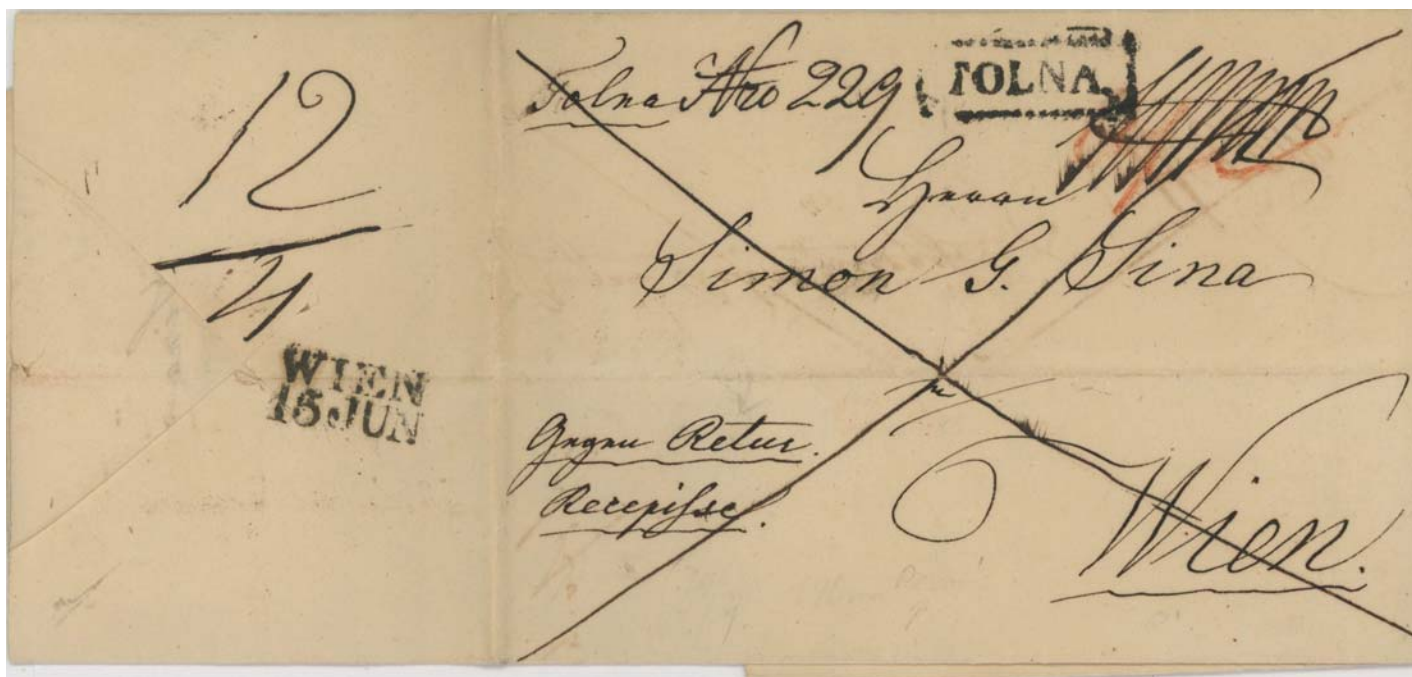 12
4
WIEN
15 JUN
Tolna Nro 229
TOLNA.
Herrn
Simon G. Sina
Gegen Retur.
Recepisse.
Wien.